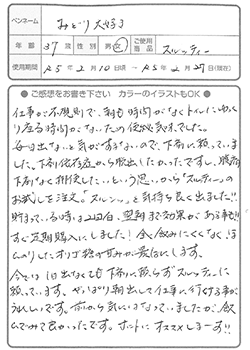 ペンネーム みどり大好き
年齢 37歳 性別 男・女 ご使用商品 スルッティー
使用期間 R5年2月10日頃 ～ R5年2月27日(現在)
●ご感想をお書き下さい カラーのイラストもOK●
仕事が不規則で、朝も時間がなくトイレにゆっく
り座る時間がないため便秘気味でした。
毎日出ないと気がすまないので、下剤に頼っていま
した。下剤依存症から脱出したかったですし、腹痛
下剤なく排便したい、という思いから"スルッティー"の
お試しを注文。スルッ～と気持ち良く出ました!!
貯まっている時は2日目、翌朝まで効果がある事も!!
すぐ定期購入にしました! 全く飲みにくくなくほ
んのりしたオリゴ糖の甘みが最高にします。
今では1日出なくても下剤に頼らずスルッティーに
頼っています。やっぱり朝出して仕事に行ける事が
うれしいです。前から気にはなっていましたが、飲
んでみて良かったです。ホントにオススメしまーす!!